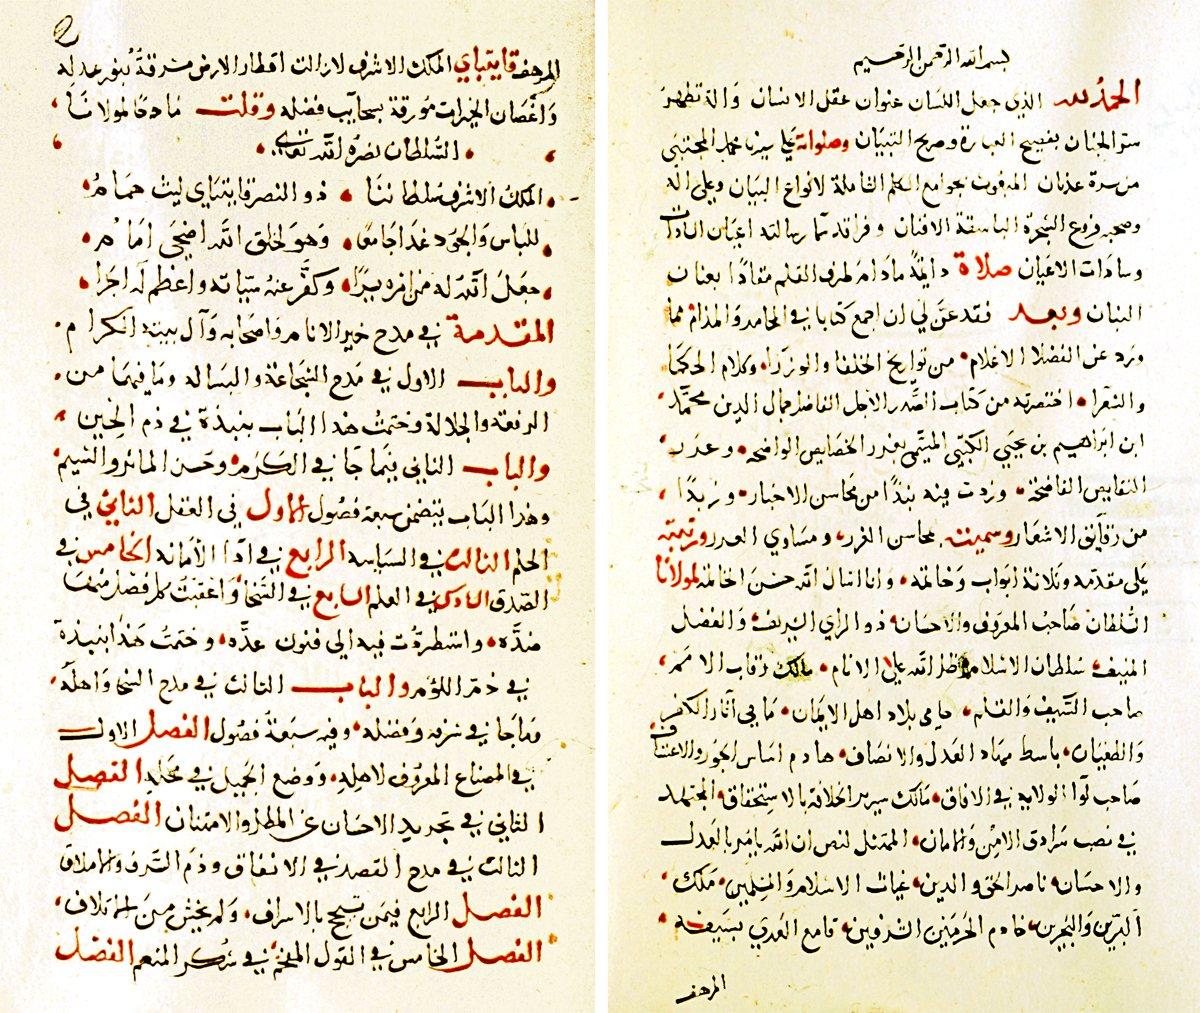 بسم الله الرحمن الرحيم
الحمد لله الذي جعل اللسان عنوان عقل الانسان والة تظهر
سر الجنان بفصيح العبارة وصريح التبيان وصلواته على سيدنا محمد المجتبى
من سرة عدنان المبعوث بجوامع الكلم الشاملة لانواع البيان وعلى اله
وصحبه فروع الشجرة الباسقة الافنان وفراقد سما رسالته اعيان السادات
وسادات الاعيان صلاة دايمة مادام طرف القلم منقادا بعنان
البنان وبعد فقد عن لي ان اجمع كتابا في المحامد والمذام مما
ورد عن الفضلا الاعلام من تواريخ الخلفا والوزرا وكلام الحكما
والشعرا اختصرته من كتاب الصدر الاجل الفاضل جمال الدين محمد
ابن ابراهيم بن يحيى الكتبي المسمى بغرر الخصايص الواضحه وعرر
النقايص الفاضحه وزدت فيه نبذا من محاسن الاخبار وزبدا
من رقايق الاشعار وسميته بمحاسن الغرر ومساوي العرر ورتبته
على مقدمه وثلاثة ابواب وخاتمه وانا اسال الله حسن الخاتمه لمولانا
السلطان صاحب المعروف والاحسان ذو الراي الشريف والفضل
المنيف سلطان الاسلام ظل الله على الانام مالك رقاب الامم
صاحب السيف والقلم حامي بلاد اهل الايمان ماحي اثار الكفر
والطغيان باسط مهاد العدل والانصاف هادم اساس الجور والاعتساف
صاحب لوا الولاية في الافاق مالك سرير الخلافة بالاستحقاق المجتهد
في نصب سرادق الامن والامان الممتثل لنص ان الله يامر بالعدل
والاحسان ناصر الحق والدين غياث الاسلام والمسلمين ملك
البرين والبحرين خادم الحرمين الشريفين قامع العدي بسيفه
المرهف
2
المرهف قايتباي الملك الاشرف لازالت اقطار الارض مشرقة بنور عدله
واغصان الخيرات مورقة بسحايب فضله وقلت مادحا لمولانا
السلطان نصره الله تعالى
الملك الاشرف سلطاننا ذو النصر قايتباي ليث همام
للباس والجود غدا جامعا وهو لخلق الله اضحى امام
جعل الله له من امره يسرا وكفر عنه سيئاته واعظم له اجرا
المقدمة في مدح خير الانام واصحابه وآل بيته الكرام
والباب الاول في مدح الشجاعة والبساله وما فيهما من
الرفعة والجلالة وختمت هذا الباب بنبذة في ذم الجبن
والباب الثاني فيما جا في الكرم وحسن الماثر والشيم
وهذا الباب يتضمن سبعة فصول الاول في العقل الثاني في
الحلم الثالث في السياسه الرابع في ادا الامانه الخامس في
الصدق السادس في العلم السابع في السخا واعقبت كل فصل منها
بضده واستطردت فيه الي فنون عده وختمت هذا بنبذة
في ذم اللؤم والباب الثالث في مدح السخا واهله
وما جا في شرفه وفضله وفيه سبعة فصول الفصل الاول
في اصطناع المعروف لاهله ووضع الجميل في محله الفصل
الثاني في تجريد الاحسان عن المطل والامتنان الفصل
الثالث في مدح القصد في الانفاق وذم السرف والاملاق
الفصل الرابع فيمن تسمح بالاسراف ولم يخش من الاتلاف
الفصل الخامس في القول المفخم في شكر المنعم الفصل